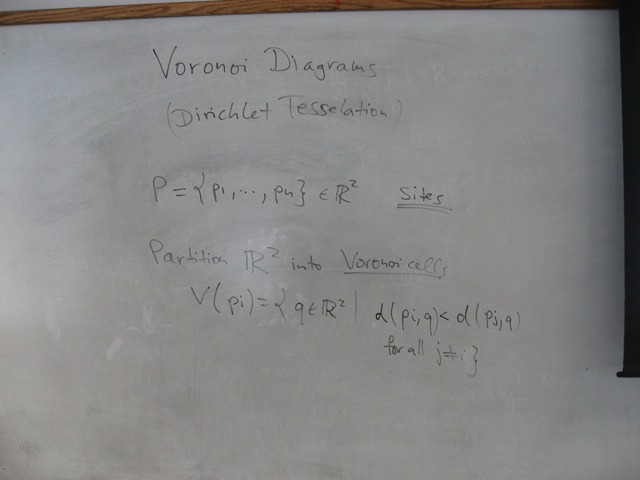 Voronoi Diagrams
(Dirichlet Tesselation)
P = {p1, ..., pn} ∈ ℝ² Sites
Partition ℝ² into Voronoi cells
V(pi) = {q ∈ ℝ² | d(pi, q) < d(pj, q)
for all j ≠ i}